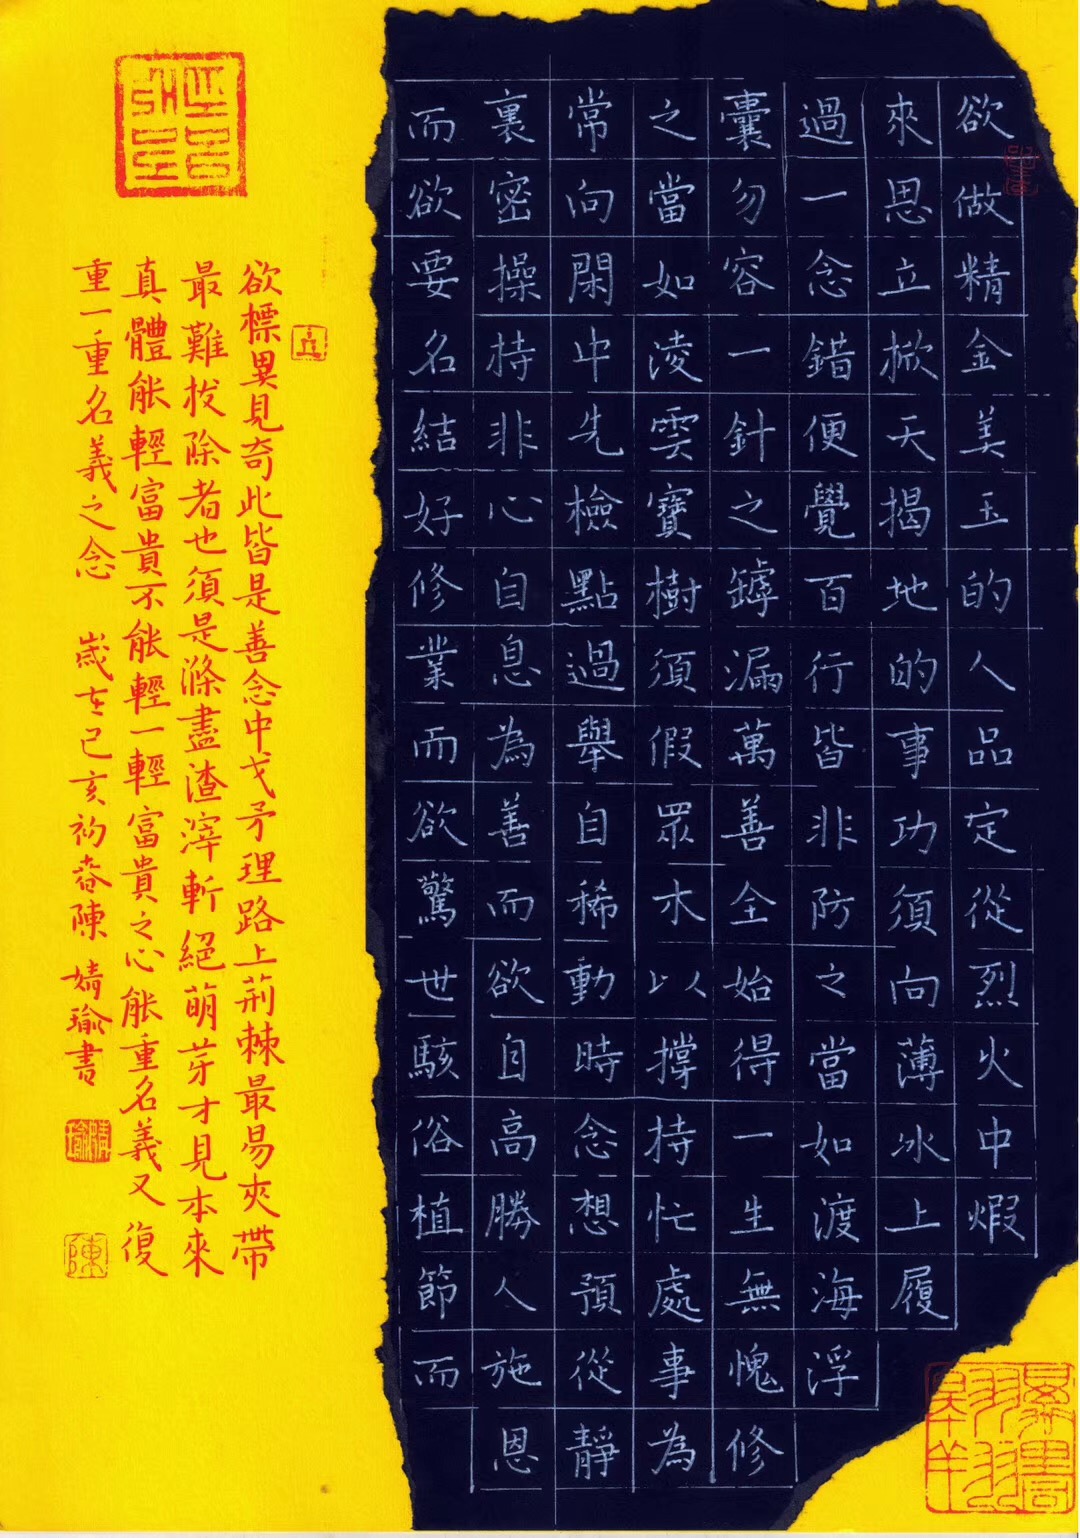 欲做精金美玉的人品定從烈火中煆
來思立掀天揭地的事功須向薄冰上履
過一念錯便覺百行皆非防之當如渡海浮
囊勿容一針之罅漏萬善全始得一生無愧修
之當如淩雲寶樹須假眾木以撐持忙處事為
常向閑中先檢點過舉自稀動時念想預從靜
裏密操持非心自息為善而欲自高勝人施恩
而欲要名結好修業而欲驚世駭俗植節而
欲標異見奇此皆是善念中戈矛理路上荊棘最易夾帶
最難拔除者也須是滌盡渣滓斬絕萌芽才見本來
真體能輕富貴不能輕一輕富貴之心能重名義又復
重一重名義之念 歲在己亥初春陳婧瑜書
婧瑜
陳